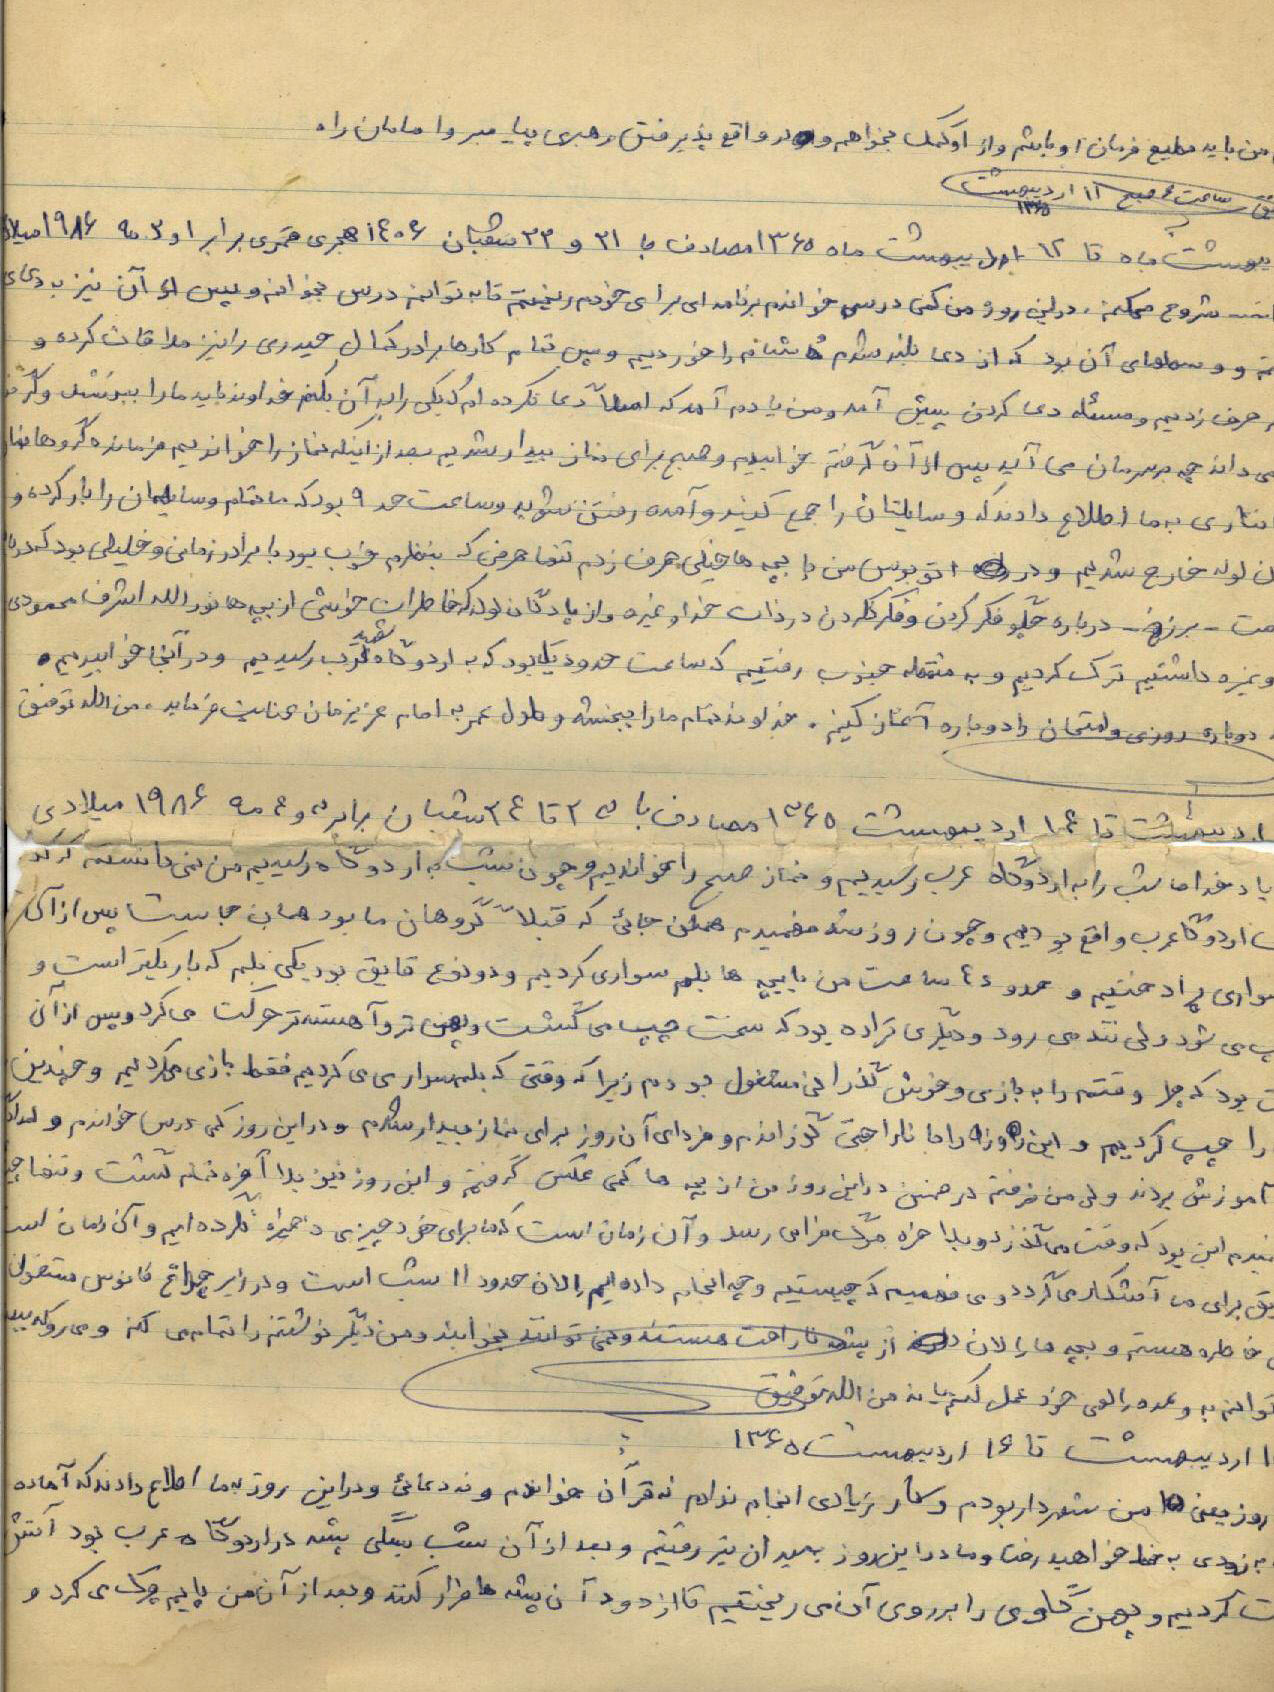 من باید مطیع فرمان او باشم و از او کمک بخواهم و در واقع پذیرفتن رهبری پیامبر و امامان راه
ساعت ۶ صبح ۱۱ اردیبهشت
۱۳۶۵
ماه تا ۱۲ اردیبهشت ماه ۱۳۶۵ مصادف با ۲۱ و ۲۲ شعبان ۱۴۰۶ هجری قمری برابر ۱ و ۲ مه ۱۹۸۶
شروع میکنم. در این روز من کمی درس خواندم برنامه ای برای خودم ریختم تا بتوانم درس بخوانم و پس از آن نیز به دعای
آن بود که از دعا بلند شدم شام را خوردیم و پس تمام کارها برادر کمال حیدری را نیز ملاقات کرده و
حرف زدیم و مسئله دعا کردن پیش آمد و من یادم آمد که اصلاً دعا نکرده ام خداوند باید ما را ببخشد وگرنه
می داند چه بر سرمان می آید پس از آن گرفتم خوابیدم و صبح برای نماز بیدار شدیم بعد از اینکه نماز را خواندیم فرمانده گروهان
به ما اطلاع دادند که وسایلتان را جمع کنید و آماده رفتن شوید و ساعت حد ۹ بود که ما تمام وسایلمان را بار کرده و
خارج شدیم و در اتوبوس من با بچه ها خیلی حرف زدم تنها حرفی که بنظرم خوب بود با برادر زمانی و خلیلی بود که در
درباره چطور فکر کردن و فکر نکردن در ذات خدا و غیره و از پادگان که خاطرات خوشی از بچه ها نورالله اشرف محمودی
و غیره داشتیم ترک کردیم و به منطقه جنوب رفتیم که ساعت حدود یک بود که به اردوگاه شهید عرب رسیدیم و در آنجا خوابیدیم
دوباره روزی و امتحان را دوباره آغاز کنیم. خداوند تمام ما را ببخشد و طول عمر به امام عزیزمان عنایت فرماید. من الله توفیق
اردیبهشت تا ۱۴ اردیبهشت ۱۳۶۵ مصادف با ۲۳ تا ۲۴ شعبان برابر ۳ و ۴ مه ۱۹۸۶ میلادی
یاد خدا ما شب را به اردوگاه عرب رسیدیم و نماز صبح را خواندیم و چون شب به اردوگاه رسیدیم من نمی دانستم که
اردوگاه عرب واقع بودیم و چون روز شد فهمیدم همان جائی که قبلاً گروهان ما بود همان جاست پس از آن
سواری پرداختیم و حدود ۴ ساعت من با بچه ها بلم سواری کردیم و دو نوع قایق بود یکی بلم که باریکتر است و
می شود ولی تند می رود و دیگری تراده بود که سخت چپ می گشت و پهن تر و آهسته تر حرکت می کرد و پس از آن
بود که چرا وقتم را به بازی و خوش گذرانی مشغول بودم زیرا که وقتی که بلم سواری می کردیم فقط بازی می کردیم و چندین
را چپ کردیم و این روز را با ناراحتی گذراندم و فردای آن روز برای نماز بیدار شدم و در این روز کمی درس خواندم و
آموزش بردند ولی من نرفتم در همین در این روز من از بچه ها کمی عکس گرفتم و این روز نیز بالاخره تمام گشت و تنها
این بود که وقت می گذرد و بالاخره مرگ فرا می رسد و آن زمان است که ما برای خود چیزی ذخیره نکرده ایم و آن زمان است
برای ما آشکار می گردد و می فهمیم که چیستیم و چه انجام داده ایم الان حدود ۱۱ شب است و در زیر چراغ فانوس مشغول
خاطره هستم و بچه ها الان از پشه ناراحت هستند و نمی توانند بخوابند و من دیگر نوشتن را تمام می کنم و می روم
توانم به وعده الهی خود عمل کنم یا نه من الله توفیق
اردیبهشت تا ۱۶ اردیبهشت ۱۳۶۵
روز یعنی ۱۵ من شهردار بودم و کار زیادی انجام ندادم نه قرآن خواندم و نه دعائی و در این روز به ما اطلاع دادند که آماده
به زودی به خط خواهید رفت و ما در این روز به میدان تیر رفتیم و بعد از آن شب پشه در اردوگاه عرب بود آتش
کردیم و پهن گاوی را بر روی آن می ریختیم تا از دود آن پشه ها فرار کنند و بعد از آن من پایم چرک می کرد و